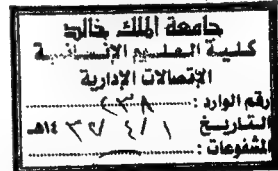 جامعة الملك خالد
كلية العلوم الإنسانية
الإتصالات الإدارية
رقم الوارد : ٢٣٨
التاريخ ١ / ٤ / ١٤٣٢هـ
المشفوعات :